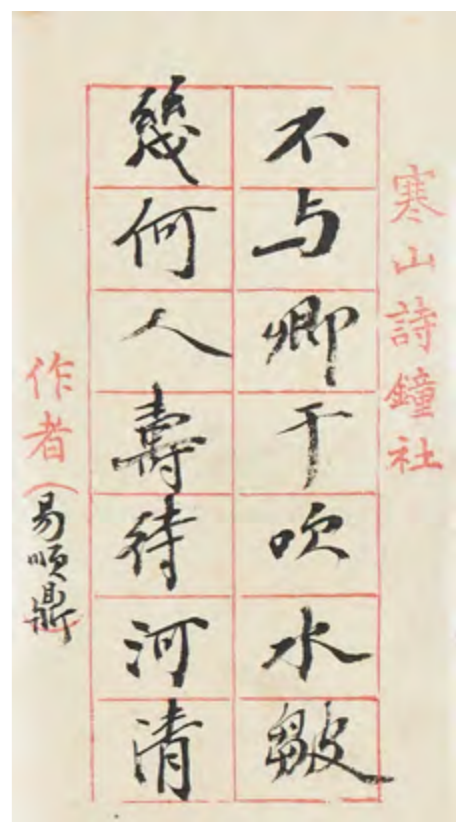 寒山詩鐘社
不与卿干吹水皺
幾何人壽待河清
作者（易順鼎）